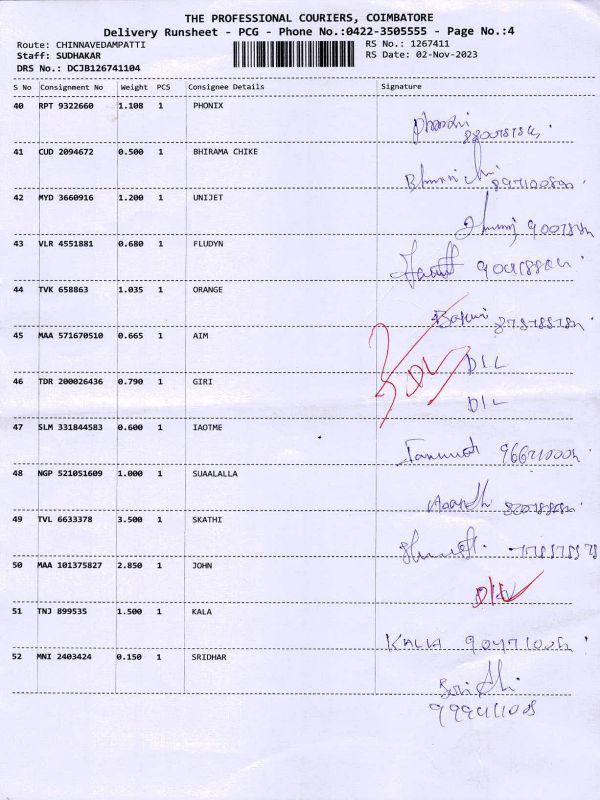 THE PROFESSIONAL COURIERS, COIMBATORE
Delivery Runsheet - PCG - Phone No.:0422-3505555 - Page No.:4
Route: CHINNAVEDAMPATTI RS No.: 1267411
Staff: SUDHAKAR RS Date: 02-Nov-2023
DRS No.: DCJB126741104
S No Consignment No Weight PCS Consignee Details Signature
40 RPT 9322660 1.108 1 PHONIX
41 CUD 2094672 0.500 1 BHIRAMA CHIKE
42 MYD 3660916 1.200 1 UNIJET
43 VLR 4551881 0.680 1 FLUDYN
44 TVK 658863 1.035 1 ORANGE
45 MAA 571670510 0.665 1 AIM D/L
46 TDR 200026436 0.790 1 GIRI D/L
47 SLM 331844583 0.600 1 IAOTME
48 NGP 521051609 1.000 1 SUAALALLA
49 TVL 6633378 3.500 1 SKATHI
50 MAA 101375827 2.850 1 JOHN D/L
51 TNJ 899535 1.500 1 KALA KALLA
52 MNI 2403424 0.150 1 SRIDHAR